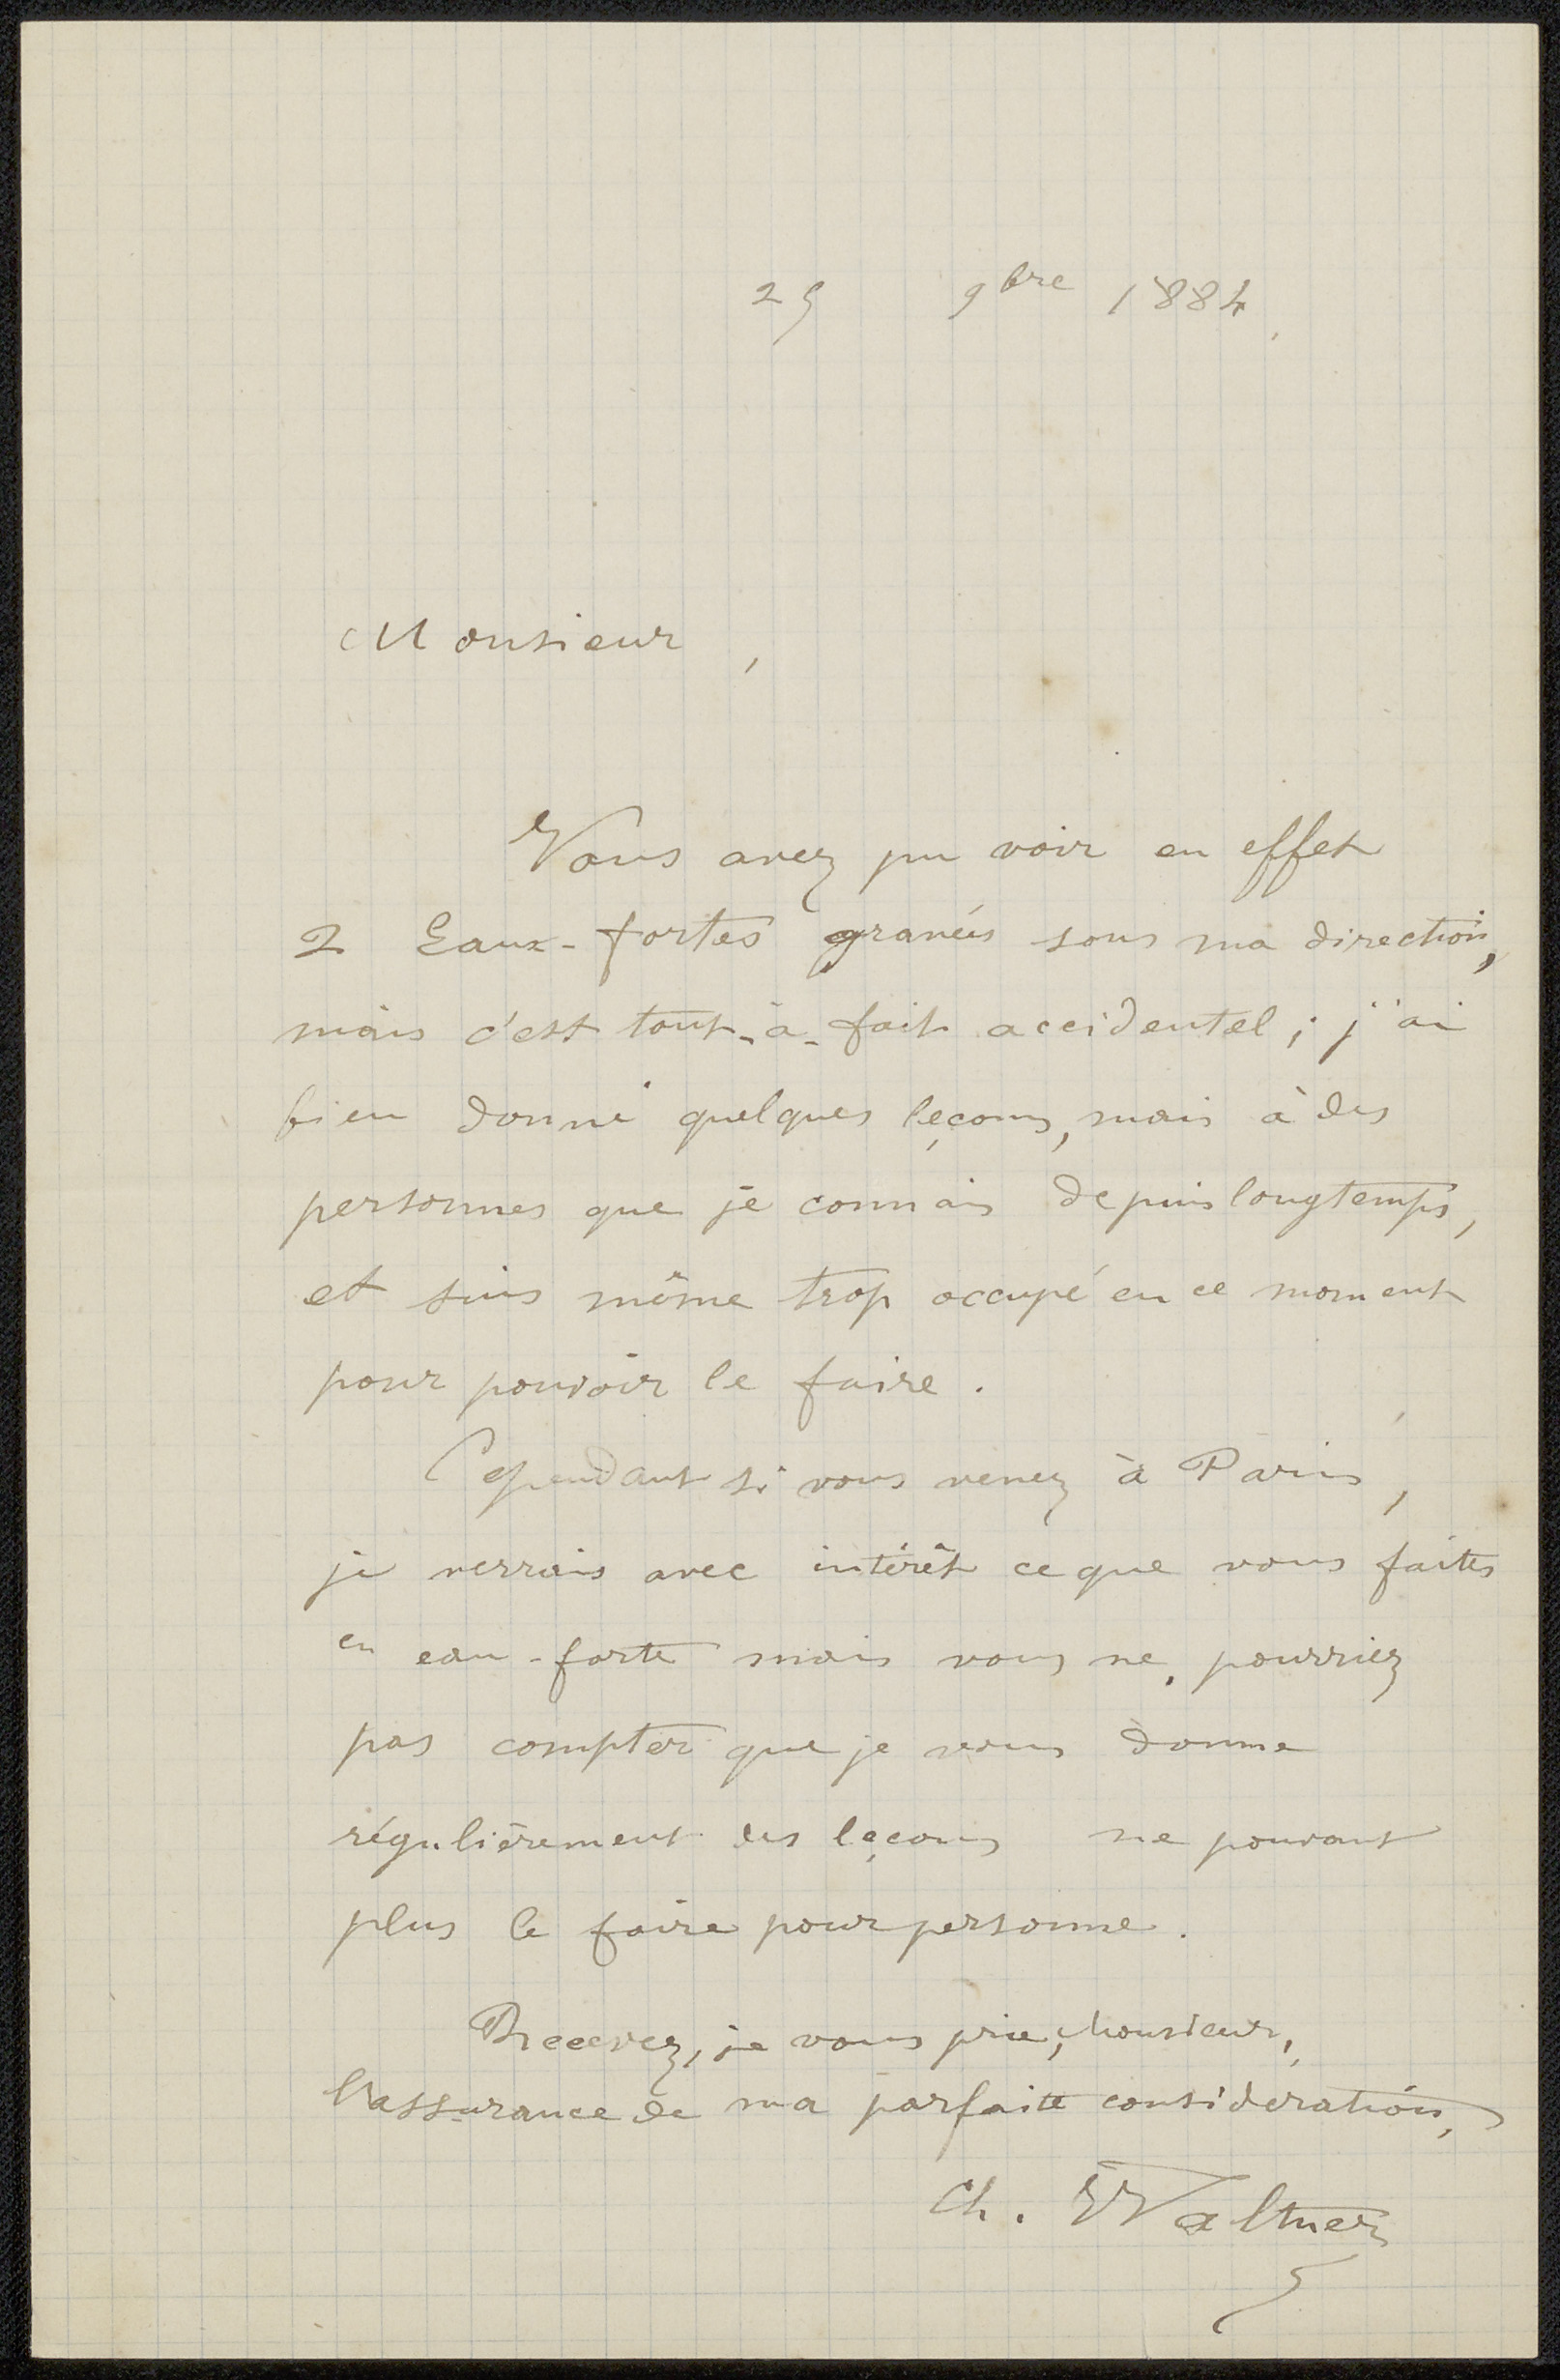 29 9bre 1884,
Monsieur,
Vous avez pu voir en effet
2 Eaux-fortes gravées sous ma direction,
mais c'est tout-à-fait accidentel; j'ai
bien donné quelques leçons, mais à des
personnes que je connais depuis longtemps,
et suis même trop occupé en ce moment
pour pouvoir le faire.
Cependant si vous venez à Paris,
je verrais avec intérêt ce que vous faites
en eau-forte mais vous ne pourriez
pas compter que je vous donne
régulièrement des leçons ne pouvant
plus le faire pour personne.
Recevez, je vous prie, Monsieur,
l'assurance de ma parfaite consideration,
Ch. Waltner